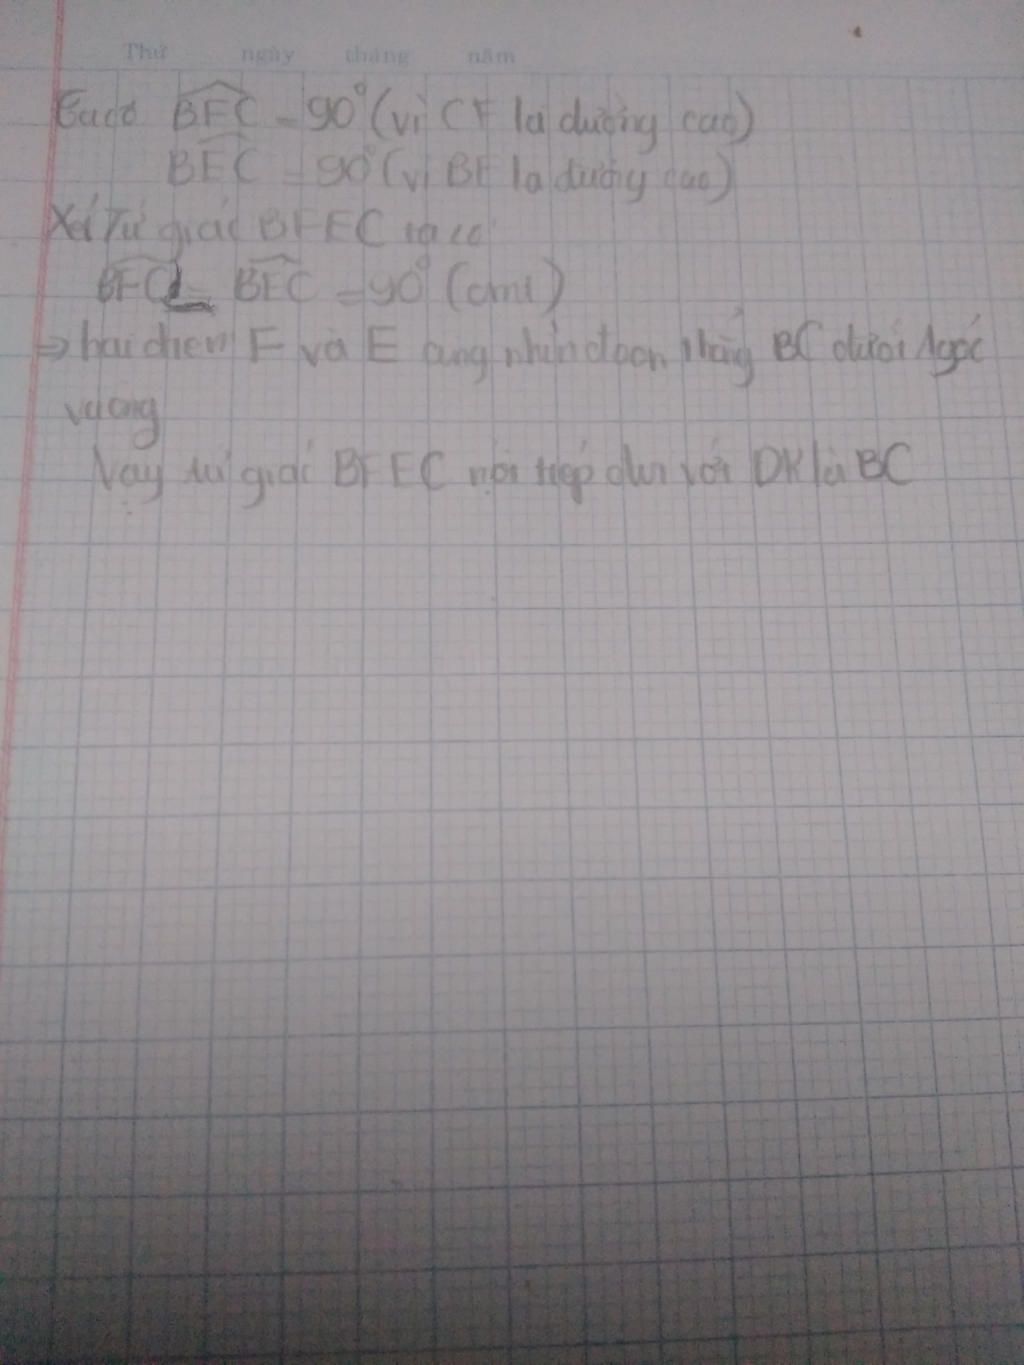 Thứ ngày tháng năm
Ta có BFC = 90° (vì CF là đường cao)
BEC = 90° (vì BE là đường cao)
Xét Tứ giác BFEC ta có
BFC = BEC = 90° (cmt)
⇒ hai đỉnh F và E cùng nhìn đoạn thẳng BC dưới 1 góc
vuông
Vậy tứ giác BFEC nội tiếp với ĐK là BC